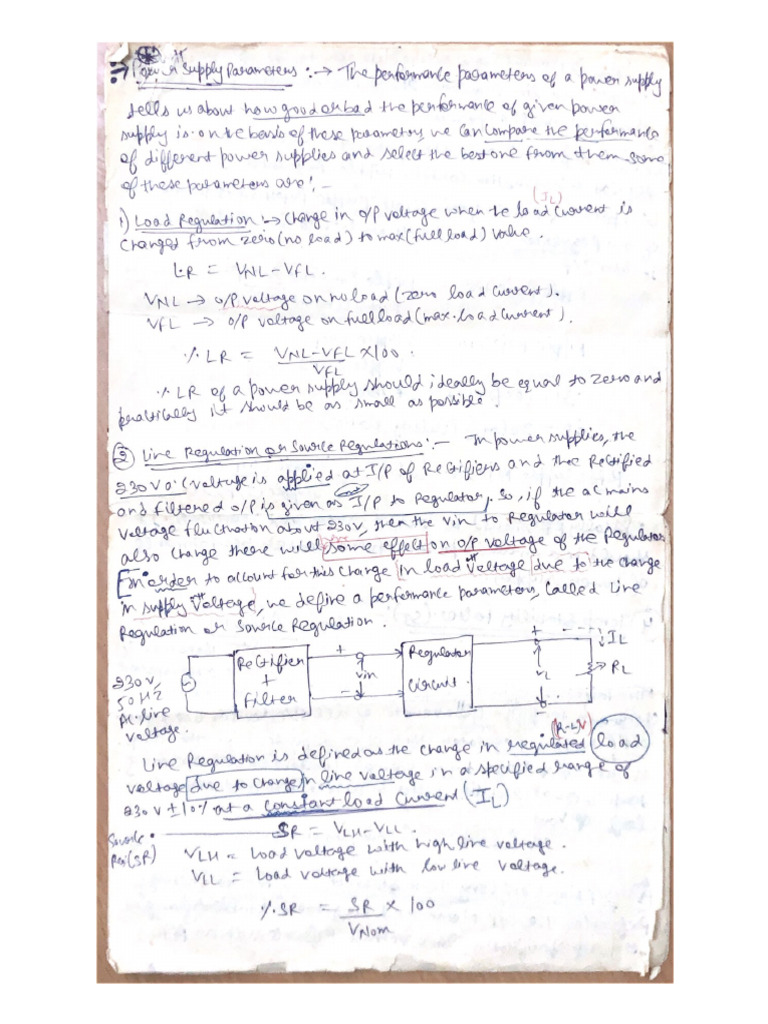 ⇒ Power Supply Parameters :→ The performance parameters of a power supply
tells us about how good or bad the performance of given power
supply is. on the basis of these parameters, we can compare the performance
of different power supplies and select the best one from them some
of these parameters are! –
(IL)
1) Load Regulation :→ Change in o/p voltage when the load current is
changed from zero (no load) to max (full load) value.
L.R = VNL - VFL.
VNL → o/p voltage on no load (zero load current).
VFL → o/p voltage on full load (max. load current).
% LR = VNL - VFL × 100.
VFL
% LR of a power supply should ideally be equal to zero and
practically it should be as small as possible.
② Line Regulation or Source Regulations :— In power supplies, the
230V a.c voltage is applied at I/P of Rectifiers and the Rectified
and filtered o/p is given as I/P to Regulator. So, if the ac mains
voltage fluctuation about 230V, then the Vin to Regulator will
also change there will some effect on o/p voltage of the Regulator
In order to account for this change in load voltage due to the change
in supply voltage, we define a performance parameters, Called Line
Regulation or Source Regulation.
Rectifier
+
filter
+
Vin
-
Regulator
circuit.
+
VL
-
↓IL
RL
230V,
50HZ
AC. line
voltage.
(R-L)V
Line Regulation is defined as the change in regulated load
voltage due to change in line voltage in a specified range of
230V ± 10% at a constant load Current (IL)
Source
Reg(SR)
SR = VLH - VLL.
VLH = Load voltage with high line voltage.
VLL = Load voltage with low line voltage.
% SR = SR × 100
VNom